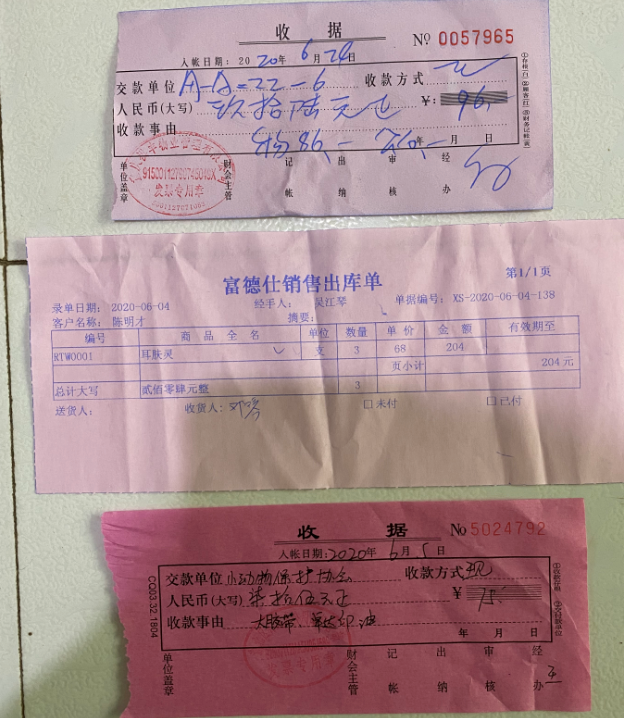 收 据 No 0057965
入帐日期: 2020年 6月 24日
交款单位 A-A-22-6 收款方式
人民币(大写) 玖拾陆元正 ¥: 96.-
收款事由 物86.- 年 月 日
单位盖章 财会主管 记帐 出纳 审核 经办
915001127987450
发票专用章
富德仕销售出库单 第1/1页
录单日期: 2020-06-04 经手人: 吴江琴 单据编号: XS-2020-06-04-138
客户名称: 陈明才 摘要:
编号 商 品 全 名 单位 数量 单 价 金 额 有效期至
RTW0001 耳肤灵 支 3 68 204
页小计 204 元
总计大写 贰佰零肆元整 3
送货人: 收货人: 口未付 口已付
收 据 No 5024792
入帐日期: 2020年 6月 5日
交款单位 小动物保护协会 收款方式 现
人民币(大写) 柒拾伍元正 ¥ 75.-
收款事由 大胶带、 印油
年 月 日
单位盖章 财会主管 记帐 出纳 审核 经办 王
CC003.32.1804